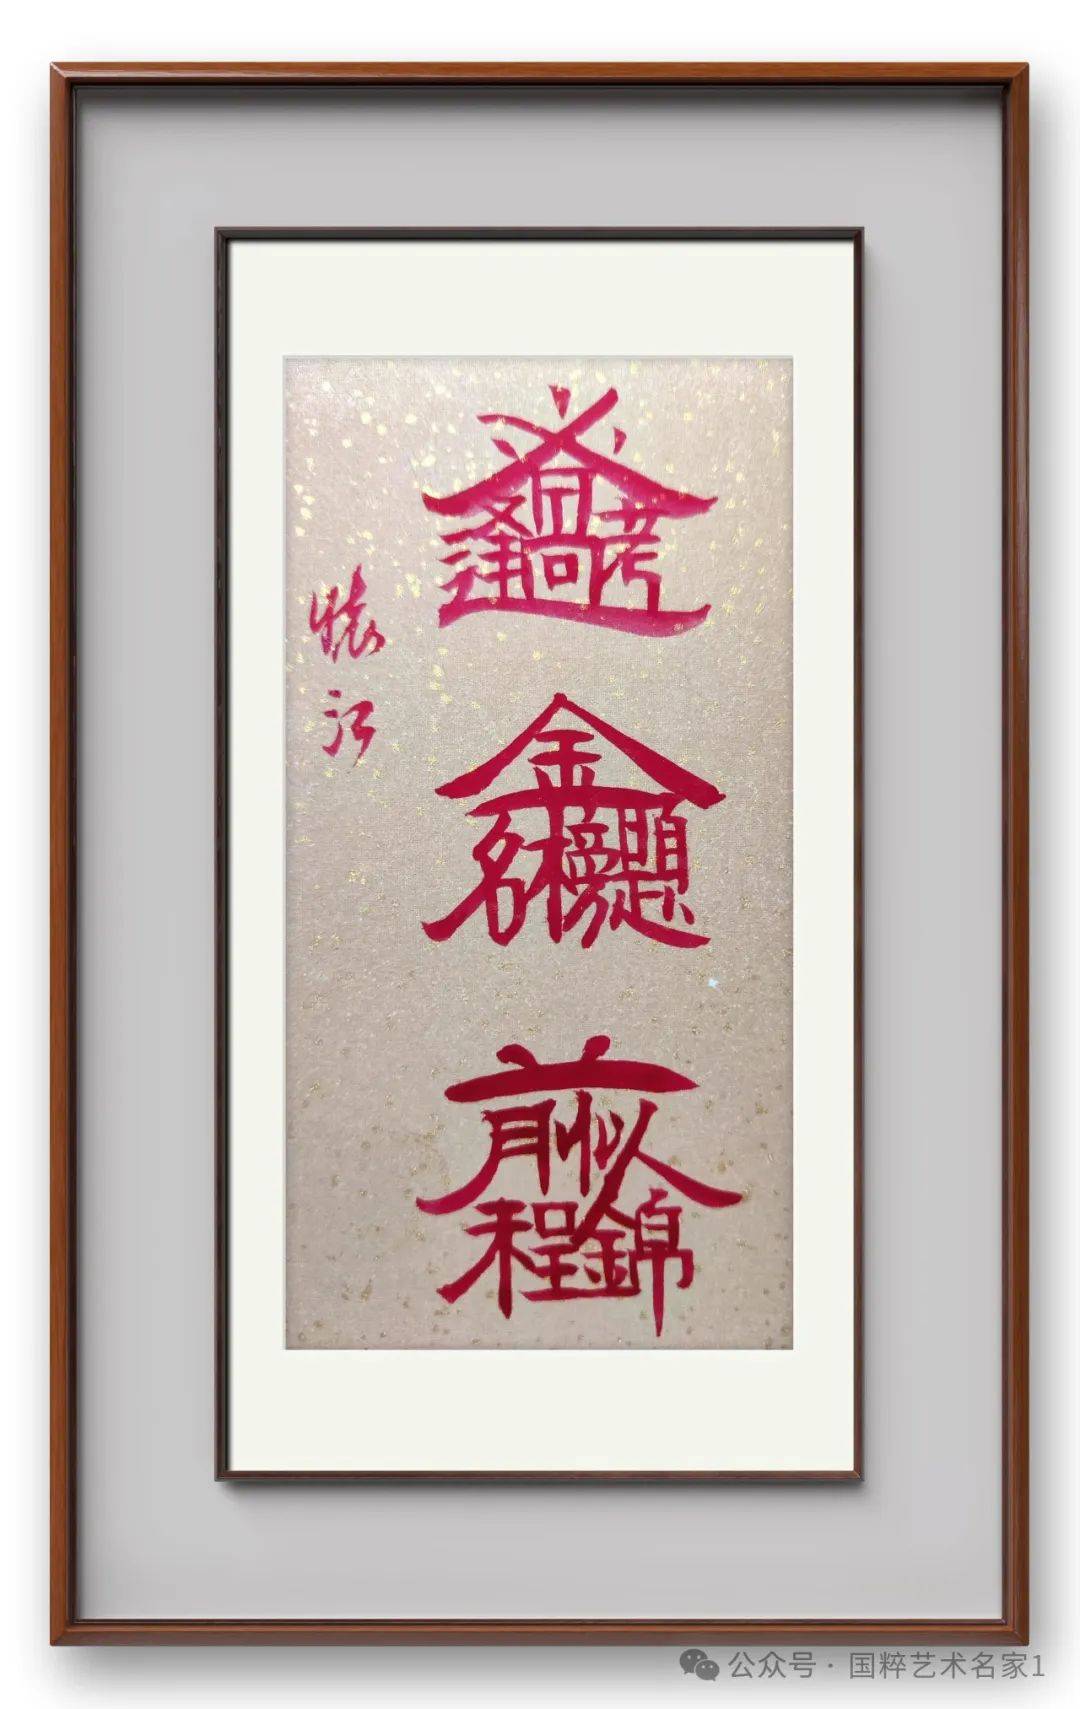 逢考必高
金榜題名
前程似錦
懷江
公众号 · 国粹艺术名家1